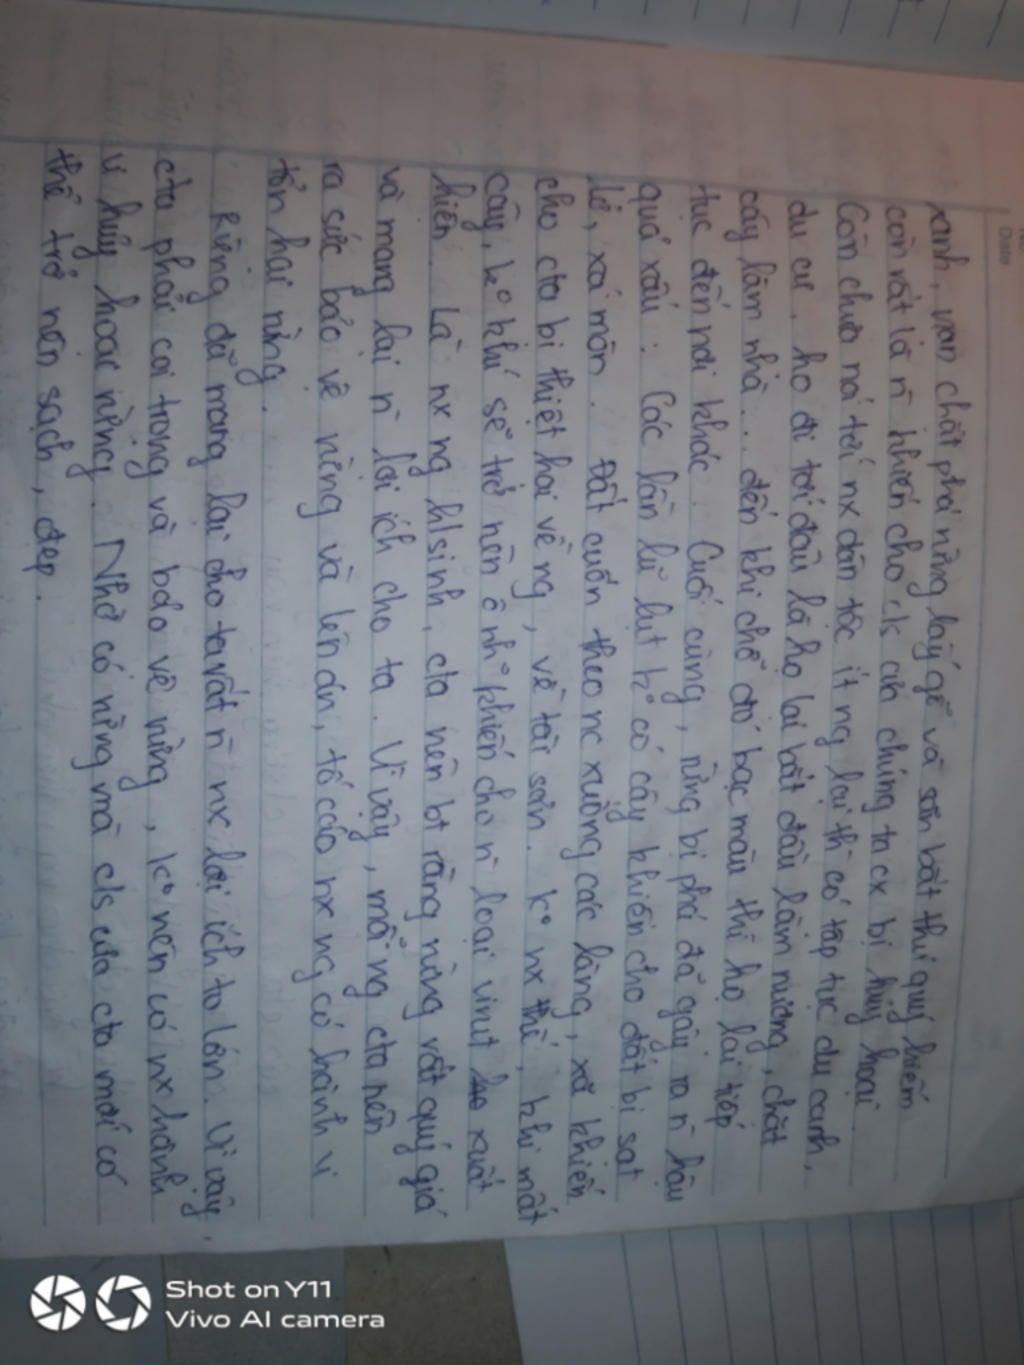 xanh, vạn chặt phá rừng lấy gỗ và săn bắt thú quý hiếm
còn rất là n̄ nhiên cho c/s của chúng ta cx bị hủy hoại
Còn chưa nói tới nx dân tộc ít ng lại thì có tập tục du canh,
du cư, họ đi tới đâu là họ lại bắt đầu làm nương, chặt
cây làm nhà... đến khi chỗ đó bạc màu thì họ lại tiếp
tục đến nơi khác. Cuối cùng, rừng bị phá đã gây ra n̄ hậu
quả xấu: Các lần lũ lụt k° có cây khiến cho đất bị sạt
lở, xói mòn. Đất cuốn theo nc xuống các làng, xã khiến
cho cta bị thiệt hại về ng, về tài sản. k° nx thế, khi mất
cây, k° khí sẽ trở nên ô nh° khiến cho n̄ loại virut xuất
hiện. Là nx ng hsinh, cta nên bt rằng rừng rất quý giá
và mang lại n̄ lợi ích cho ta. Vì vậy, mỗi ng cta nên
ra sức bảo vệ rừng và lên án, tố cáo nx ng có hành vi
tổn hại rừng.
Rừng đã mang lại cho ta rất n̄ nx lợi ích to lớn. Vì vậy,
cta phải coi trọng và bảo vệ rừng, k° nên có nx hành
vi hủy hoại rừng. Nhờ có rừng mà c/s của cta mới có
thể trở nên sạch, đẹp.
Shot on Y11
Vivo AI camera